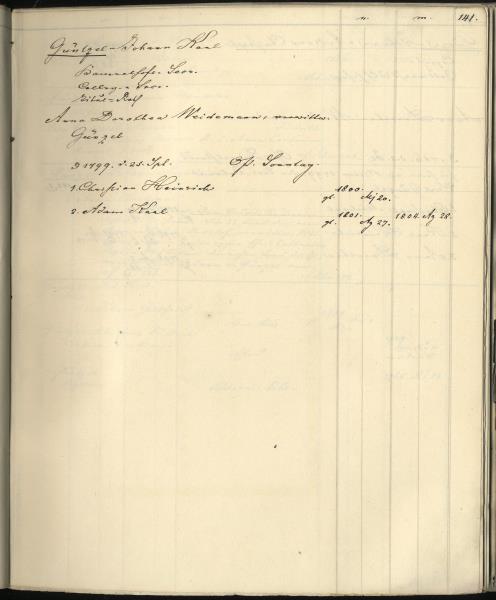 n. m. 141.
Güntzel, Johann Karl
Secr.
Colleg. Secr.
Titul. Rath
Anna Dorothea Weidemann, verwittw.
Günzel
1799. d. 25. Spt. Sonntag.
1. Christian Heinrich gb. 1800. Mz 20.
2. Adam Karl gb. 1801. Ag 27. 1804. Ag 28.